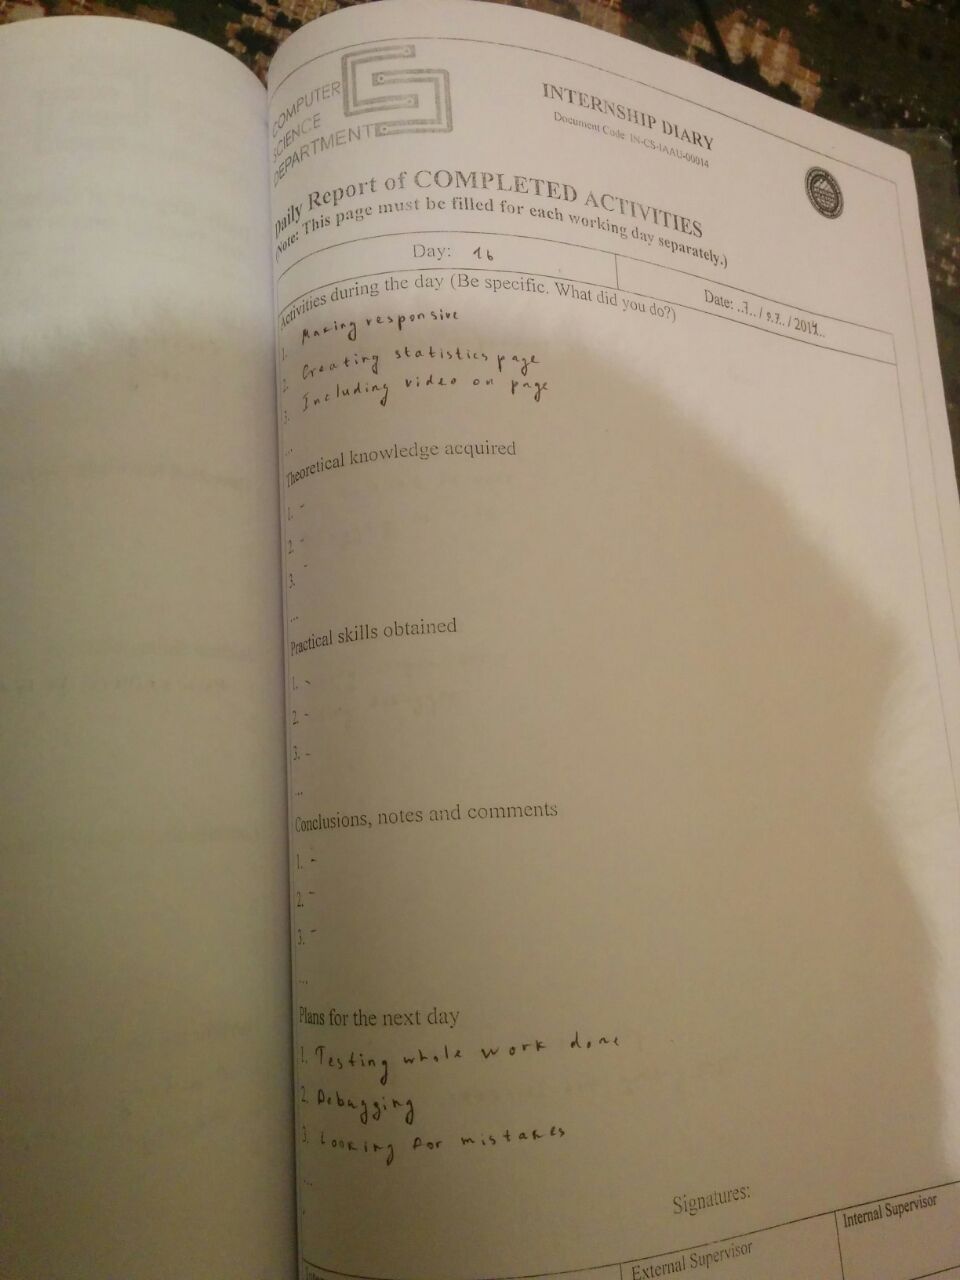 COMPUTER
SCIENCE
DEPARTMENT
INTERNSHIP DIARY
Document Code: IN-CS-IAAU-00014
Daily Report of COMPLETED ACTIVITIES
(Note: This page must be filled for each working day separately.)
Day: 16
Date:
Activities during the day (Be specific. What did you do?)
1. Making responsive
2. Creating statistics page
3. Including video on page
...
Theoretical knowledge acquired
1. -
2. -
3. -
...
Practical skills obtained
1. -
2. -
3. -
...
Conclusions, notes and comments
1. -
2. -
3. -
...
Plans for the next day
1. Testing whole work done
2. Debugging
3. Looking for mistakes
...
Signatures:
External Supervisor
Internal Supervisor